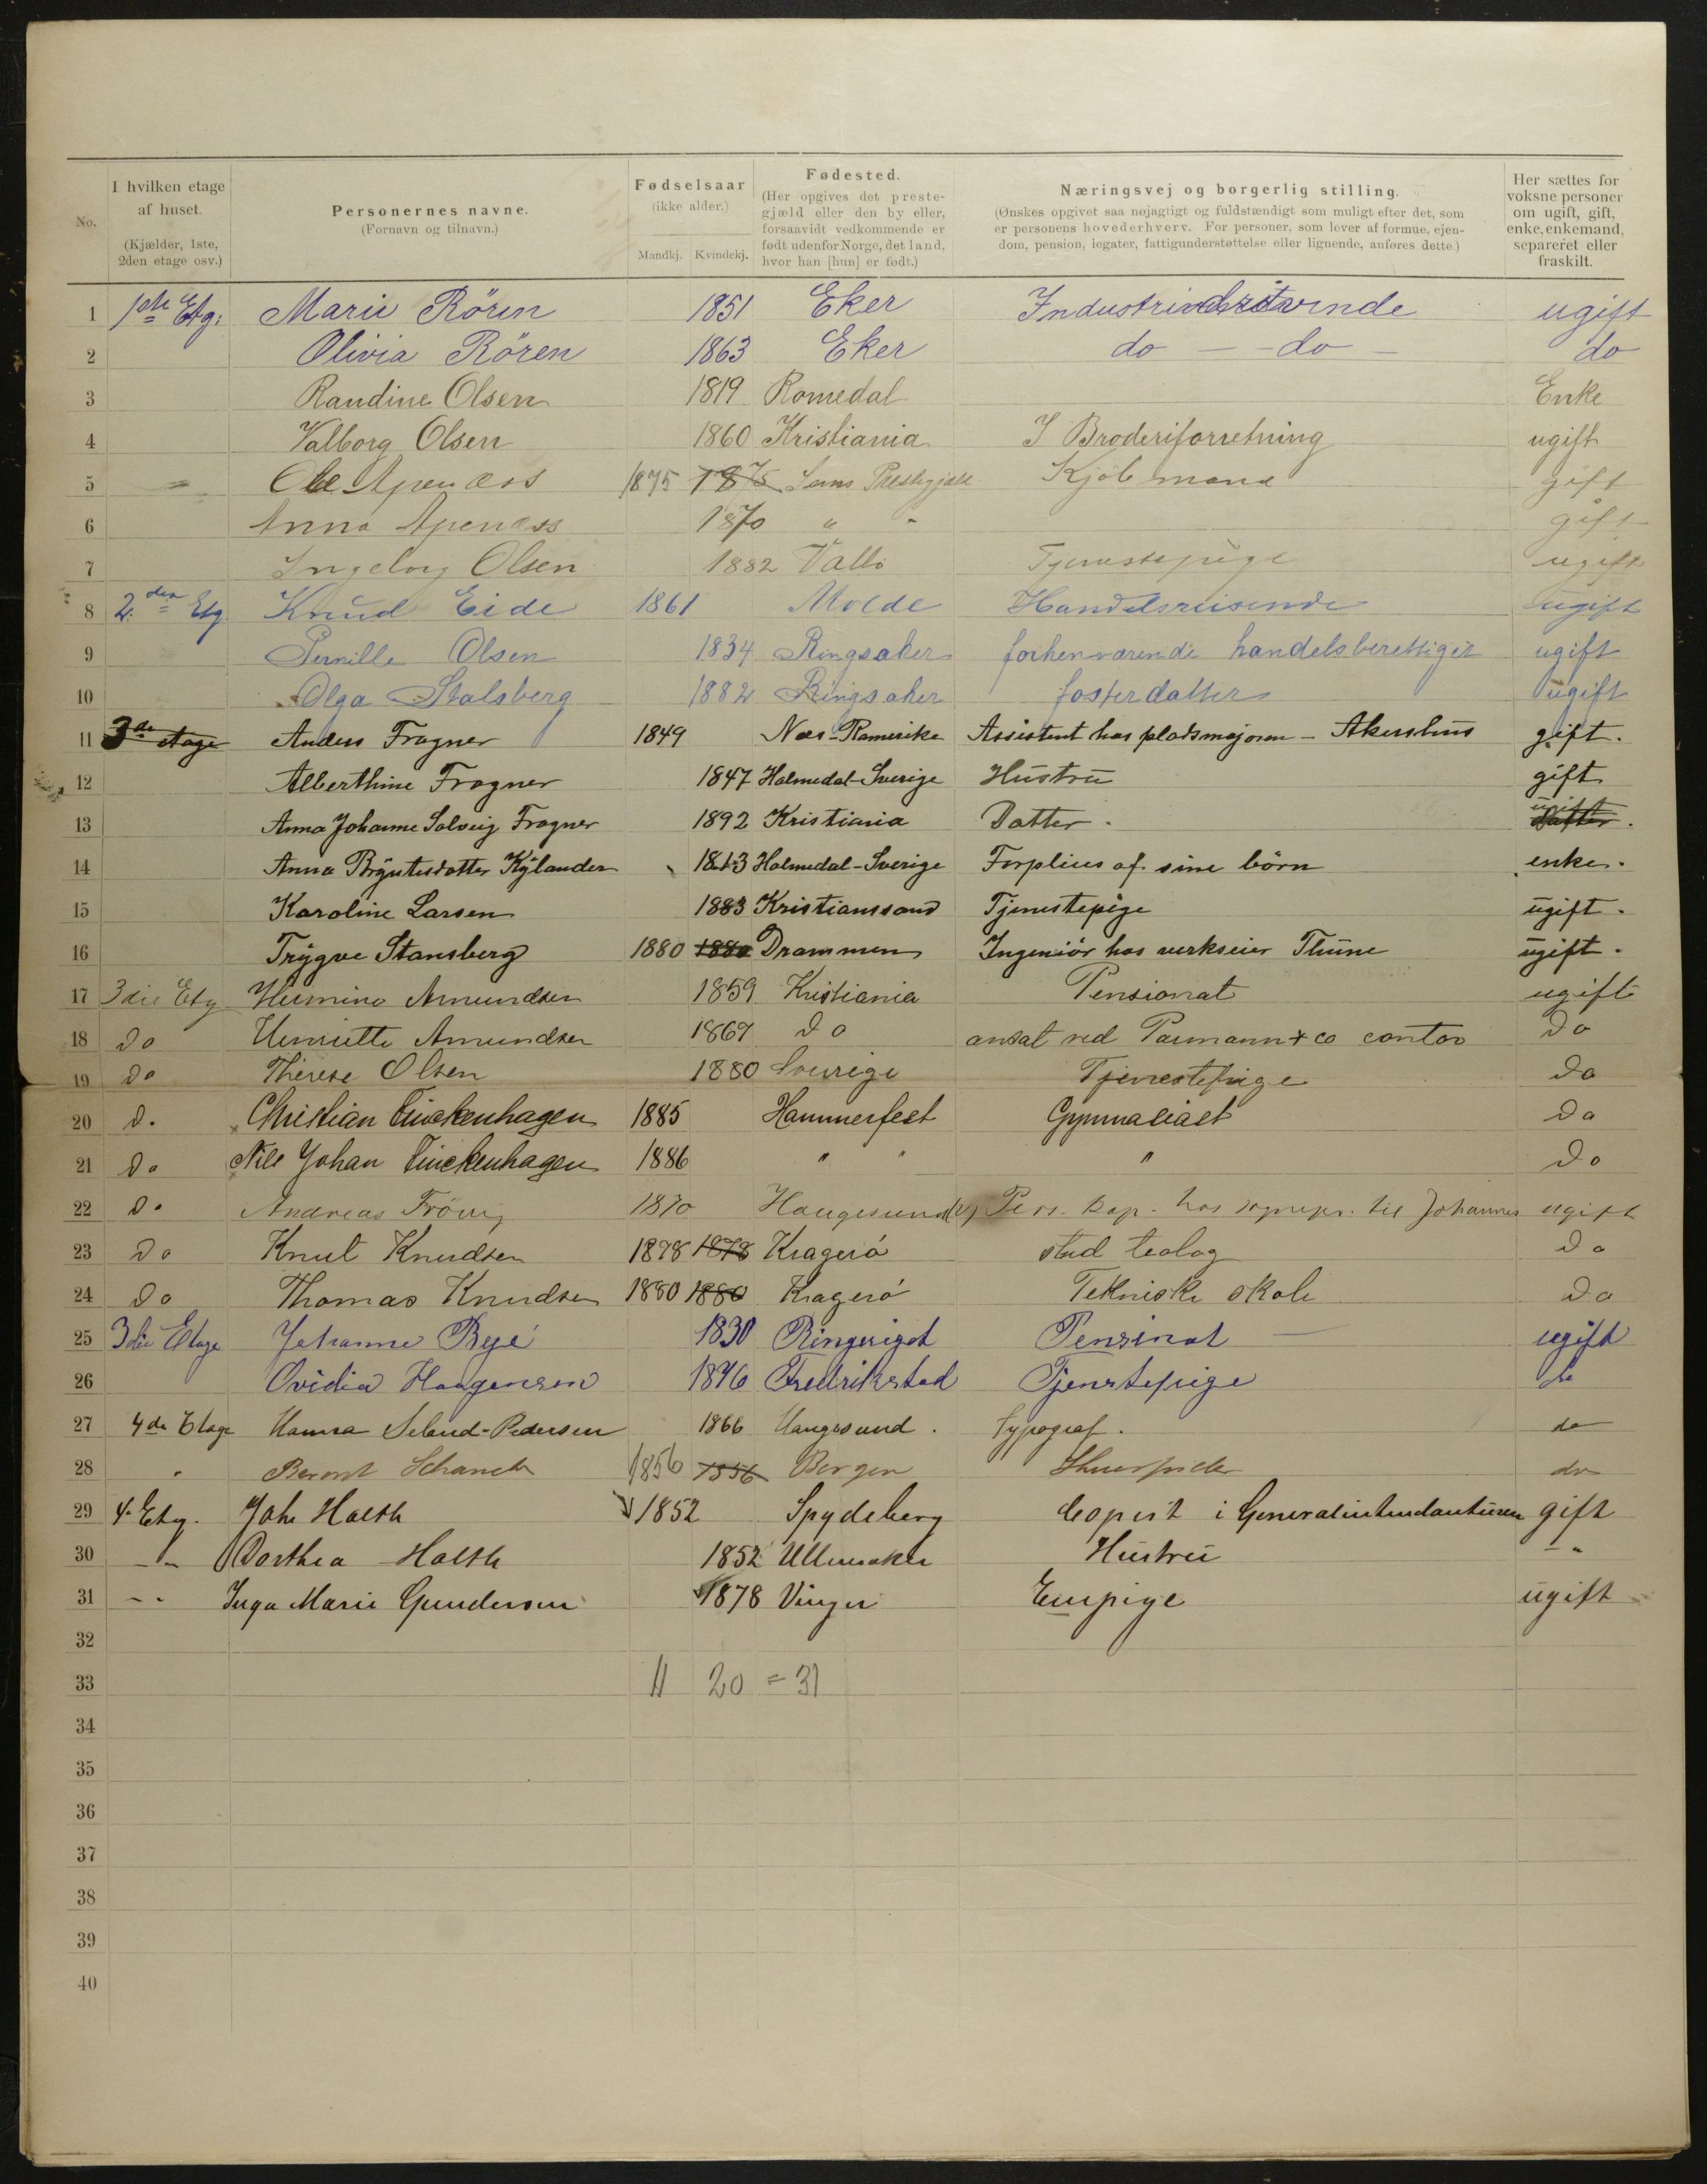 No. | I hvilken etage af huset. (Kjælder, 1ste, 2den etage osv.) | Personernes navne. (Fornavn og tilnavn.) | Fødselsaar (ikke alder.) Mandkj. Kvindekj. | Fødested. (Her opgives det prestegjæld eller den by eller, forsaavidt vedkommende er født udenfor Norge, det land, hvor han [hun] er født.) | Næringsvej og borgerlig stilling. (Ønskes opgivet saa nøjagtigt og fuldstændigt som muligt efter det, som er personens hovederhverv. For personer, som lever af formue, ejendom, pension, legater, fattigunderstøttelse eller lignende, anføres dette.) | Her sættes for voksne personer om ugift, gift, enke, enkemand, separeret eller fraskilt.
1 1ste Etg. Marie Rören 1851 Eker ugift
2 Olivia Rören 1863 Eker do — do — do
3 Randine Olsen 1819 Romedal Enke
4 Valborg Olsen 1860 Kristiania I Broderiforretning ugift
5 " Ole Apenæss 1875 1875 Sems Prestegjæld Kjøbmand gift
6 Anna Apenæss 1870 " " gift
7 Ingeborg Olsen 1882 Vallö Tjenestepige ugift
8 2den Etg. Knud Eide 1861 Molde Handelsreisende ugift
9 Pernille Olsen 1834 Ringsaker forhenværende handelsberettiget ugift
10 Olga Stalsberg 1882 Ringsaker fosterdatter ugift
11 3de etage Anders Fragner 1849 Næs-Romerike Assistent hos pladsmajoren - Akershus gift.
12 Alberthine Fragner 1847 Holmedal-Sverige Hustru gift
13 Anna Johanne Solveig Fragner 1892 Kristiania Datter. ugift Datter.
14 Anna Bryntesdotter Kylander 1813 Holmedal-Sverige Forpleies af sine børn enke.
15 Karoline Larsen 1883 Kristianssand Tjenestepige ugift.
16 Trygve Stansberg 1880 1880 Drammen Ingeniör hos verkseier Thune ugift.
17 3die Etg Hermine Amundsen 1859 Kristiania Pensionat ugift
18 Do Henriette Amundsen Do ansat ved Parmann & co contor Do
19 Do Therese Olsen 1880 Sverige Tjenestepige Do
20 D. Christian Finckenhagen 1885 Hammerfest Gymnasiast Do
21 Do Nils Johan Finckenhagen 1886 " " " Do
22 Do Andreas Frövig 1870 Haugesund Pers. kap. hos sognepr. til Johannes ugift
23 Do Knut Knudsen 1878 1878 Kragerö stud teolog Do
24 Do Thomas Knudsen 1880 1880 Kragerö Tekniske skole Do
25 3die Etage Johanne Beje 1830 Ringeriget Pensinat — ugift
26 Ovidia Haagensen 1846 Fredrikstad Tjenstepige do
27 4de Etage Hanna Seland-Pedersen 1866 Haugesund. Typograf. do
28 " Berent Schanch 1856 1856 Bergen Skuespiller do
29 4. Etg. Johs Holth 1852 Spydeberg Copist i Generalintendanturen gift
30 - " - Dorthea Holth 1852 Ullensaker Hustru - "
31 - " - Inga Marie Gundersen 1878 Vinger Enepige ugift
32
33 11 20 = 31
34
35
36
37
38
39
40